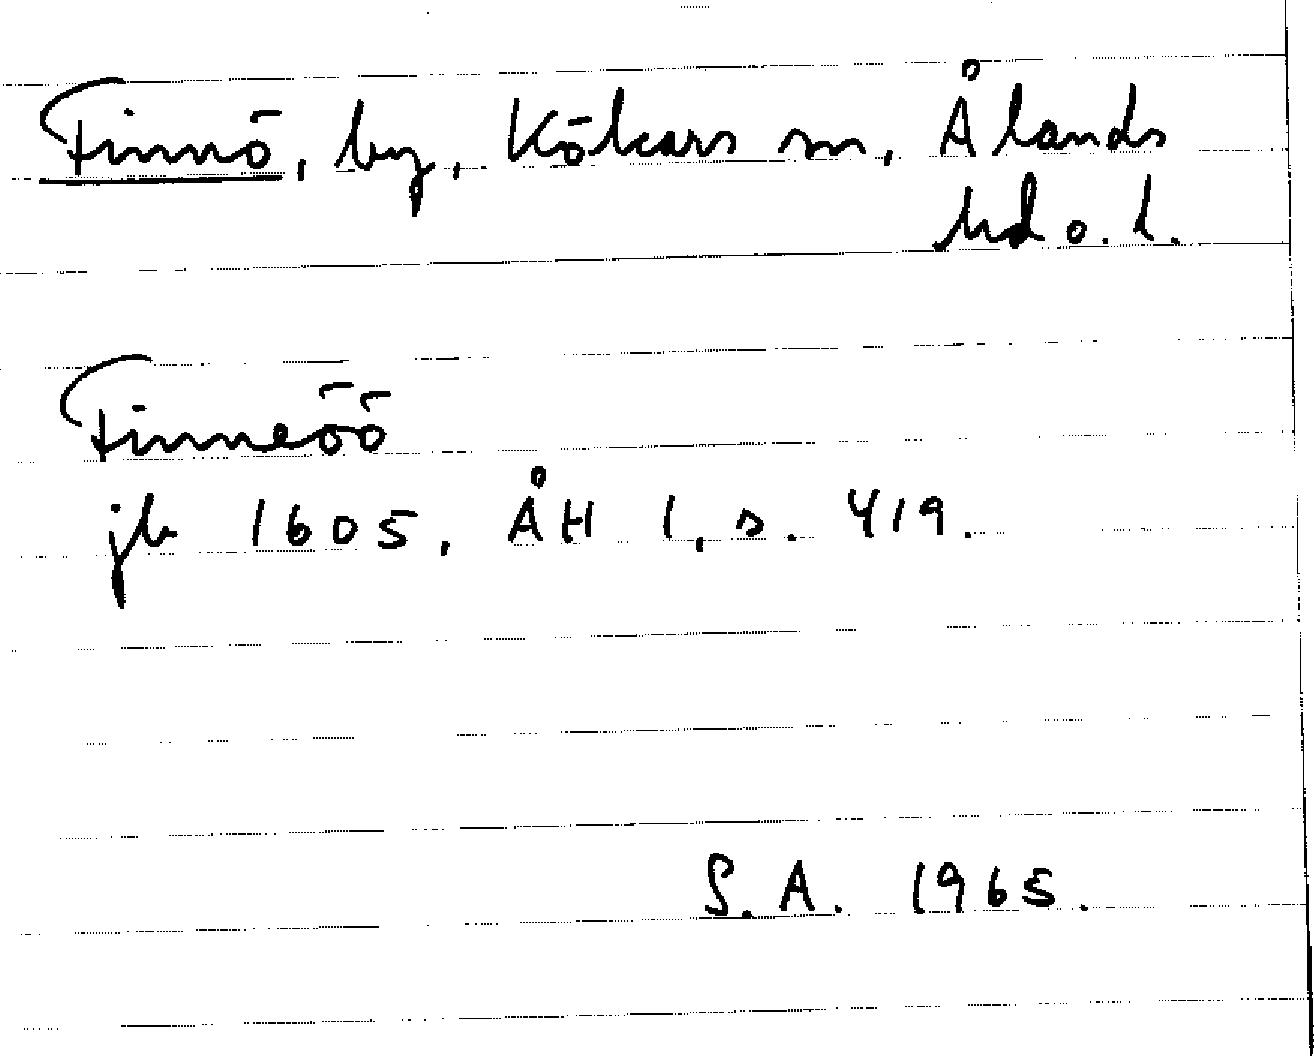 Finnö, by, Kökars sn, Ålands
hd o. l.
Finneöö
jb 1605, ÅH 1, s. 419.
S. A. 1965.